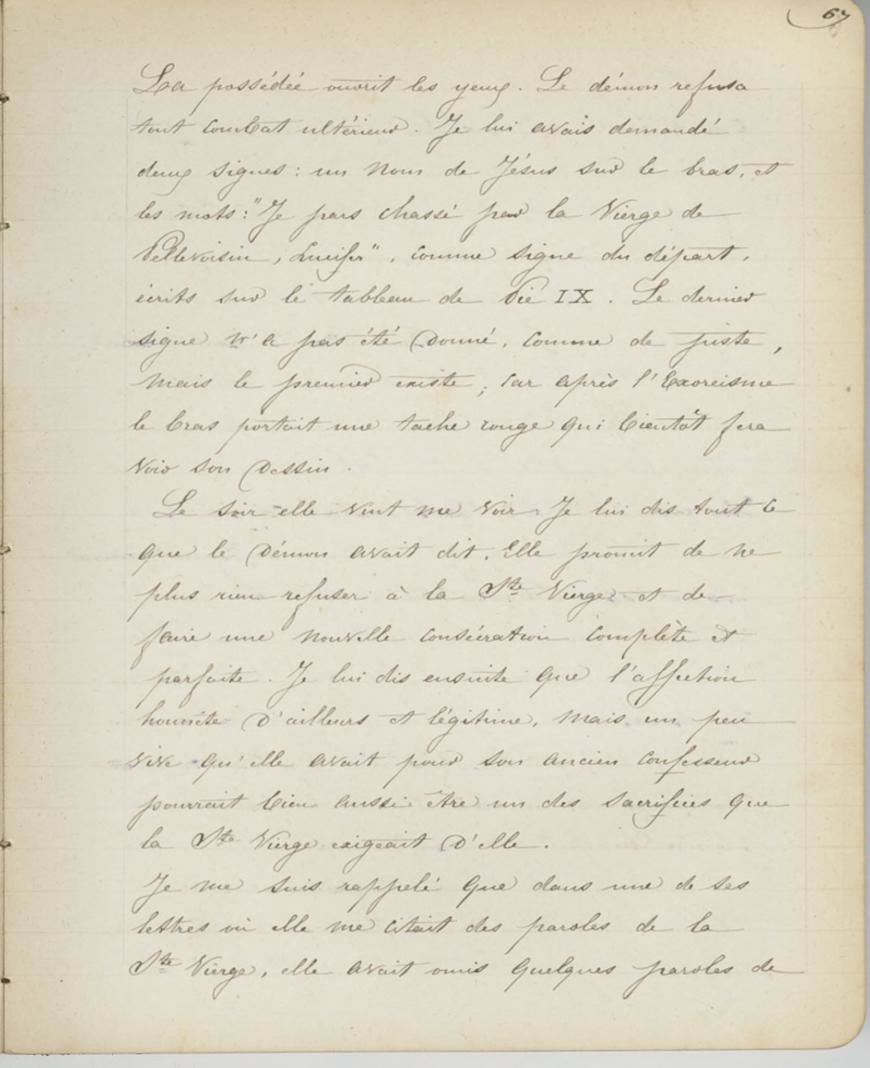 67
La possédée ouvrit les yeux. Le démon refusa
tout combat ultérieur. Je lui avais demandé
deux signes : un Nom de Jésus sur le bras, et
les mots : "Je pars chassé par la Vierge de
Pellevoisin, Lucifer", comme signe du départ,
écrits sur le tableau de Pie IX. Le dernier
signe n'a pas été Donné, comme de juste,
mais le premier existe ; car après l'Exorcisme
le bras portait une tache rouge qui bientôt fera
voir son Dessin.
Le soir elle vint me voir. Je lui dis tout ce
que le Démon avait dit. Elle promit de ne
plus rien refuser à la Ste Vierge et de
faire une nouvelle consécration complète et
parfaite. Je lui dis ensuite que l'affection
honnête D'ailleurs et légitime, mais un peu
vive qu'elle avait pour son ancien confesseur
pourrait bien aussi être un des sacrifices que
la Ste Vierge exigeait D'elle.
Je me suis rappelé que dans une de ses
lettres où elle me citait des paroles de la
Ste Vierge, elle avait omis quelques paroles de